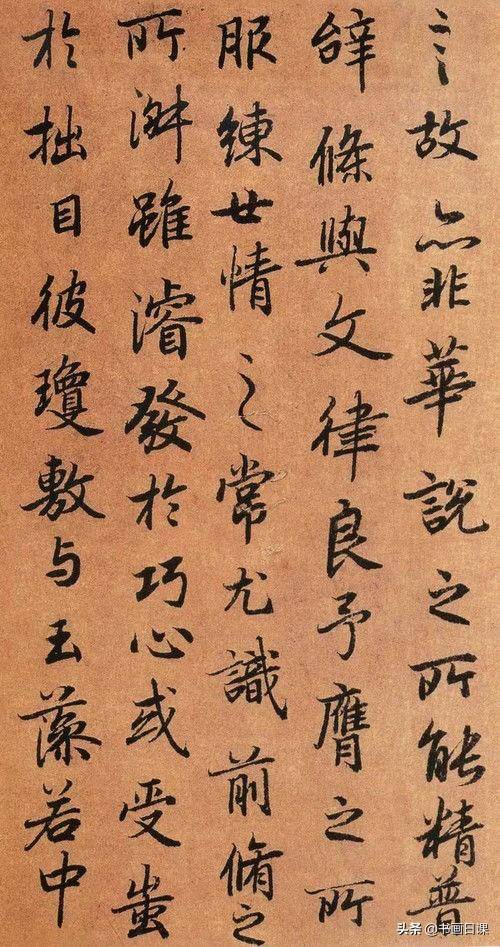 言故亦非華說之所能精普
辭條與文律良予膺之所
服練世情之常尤識前脩之
所淑雖濬發於巧心或受蚩
於拙目彼瓊敷与玉藻若中
头条 @书画日课